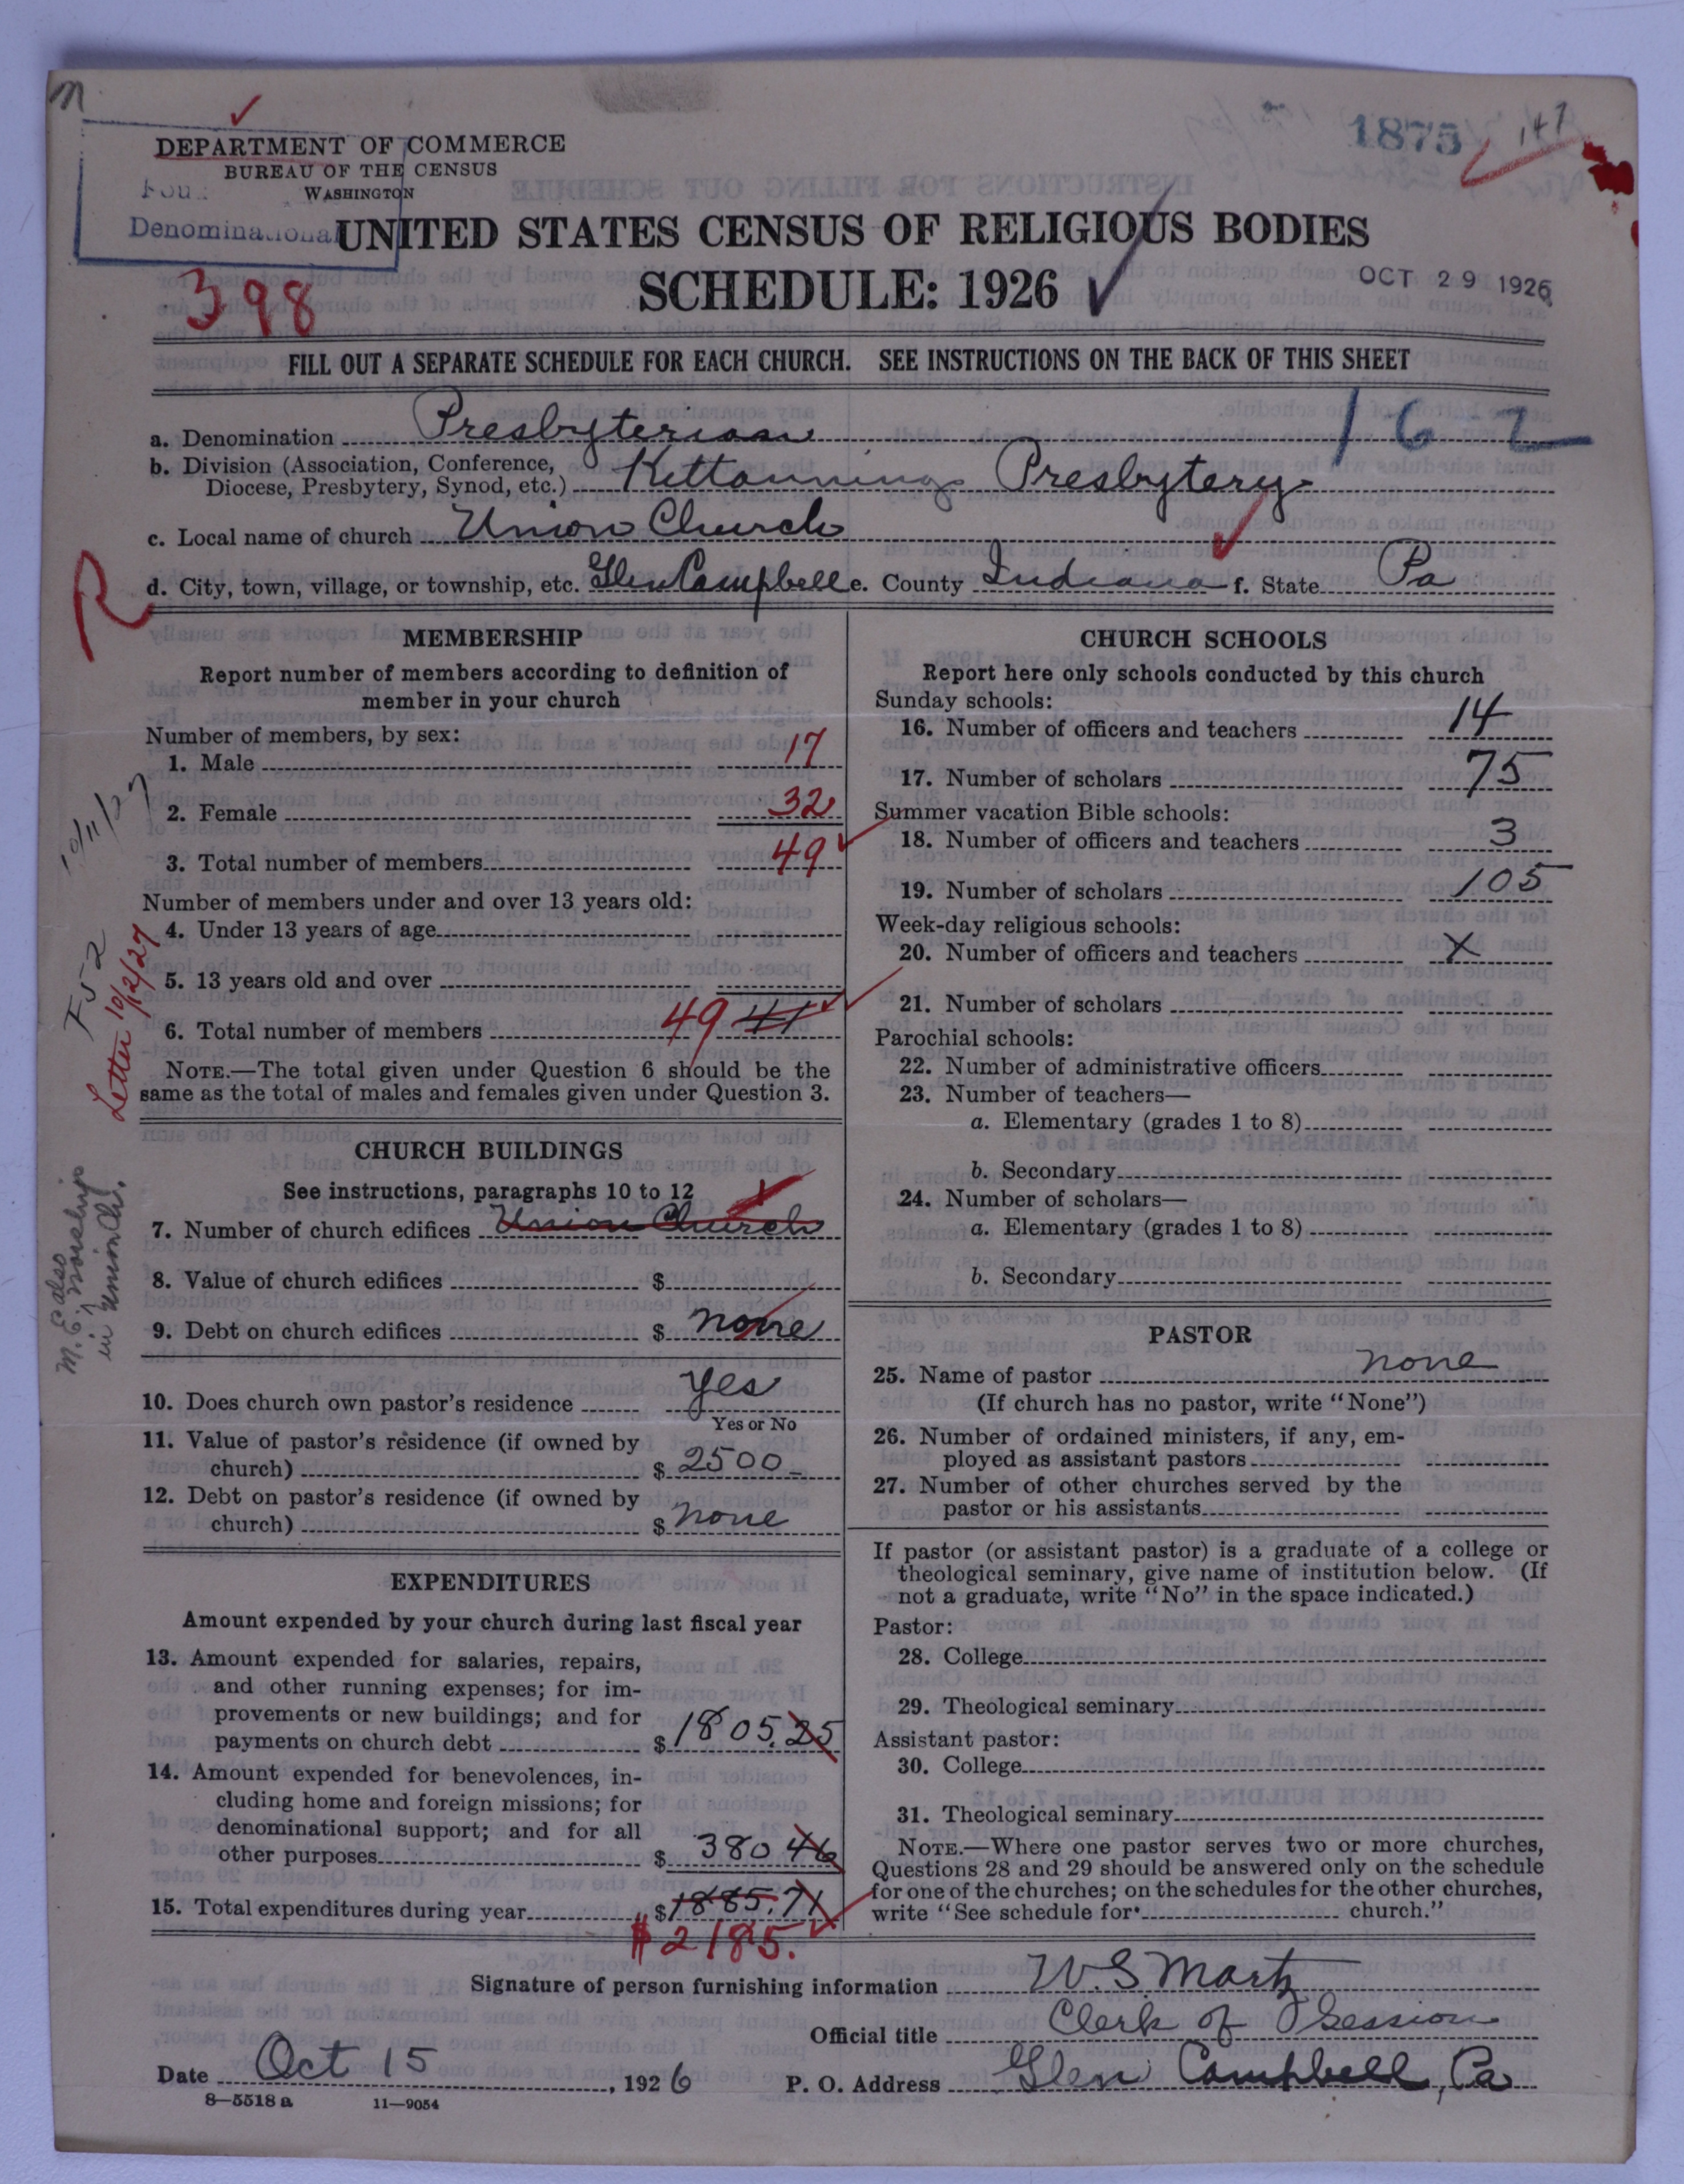 1875
147
DEPARTMENT OF COMMERCE
BUREAU OF THE CENSUS
WASHINGTON
Denominational
UNITED STATES CENSUS OF RELIGIOUS BODIES
SCHEDULE: 1926
OCT 29 1926
398
FILL OUT A SEPARATE SCHEDULE FOR EACH CHURCH. SEE INSTRUCTIONS ON THE BACK OF THIS SHEET
162
a. Denomination Presbyterian
b. Division (Association, Conference,
Diocese, Presbytery, Synod, etc.) Kittanning Presbytery
c. Local name of church Union Church
R
d. City, town, village, or township, etc. Glen Campbell e. County Indiana f. State Pa
MEMBERSHIP
Report number of members according to definition of
member in your church
Number of members, by sex:
1. Male 17
2. Female 32
3. Total number of members 49
Number of members under and over 13 years old:
4. Under 13 years of age
5. 13 years old and over
6. Total number of members 49 41
NOTE.—The total given under Question 6 should be the
same as the total of males and females given under Question 3.
10/11/27
F52
Letter 10/12/27
CHURCH BUILDINGS
See instructions, paragraphs 10 to 12
7. Number of church edifices Union Church
8. Value of church edifices $
9. Debt on church edifices $ none
M. E. also
worships
in Union Ch.
10. Does church own pastor's residence Yes
Yes or No
11. Value of pastor's residence (if owned by
church) $ 2500-
12. Debt on pastor's residence (if owned by
church) $ none
EXPENDITURES
Amount expended by your church during last fiscal year
13. Amount expended for salaries, repairs,
and other running expenses; for im-
provements or new buildings; and for
payments on church debt $ 1805.25
14. Amount expended for benevolences, in-
cluding home and foreign missions; for
denominational support; and for all
other purposes $ 380 46
15. Total expenditures during year $ 1885.71
$2185.
CHURCH SCHOOLS
Report here only schools conducted by this church
Sunday schools:
16. Number of officers and teachers 14
17. Number of scholars 75
Summer vacation Bible schools:
18. Number of officers and teachers 3
19. Number of scholars 105
Week-day religious schools:
20. Number of officers and teachers X
21. Number of scholars
Parochial schools:
22. Number of administrative officers
23. Number of teachers—
a. Elementary (grades 1 to 8)
b. Secondary
24. Number of scholars—
a. Elementary (grades 1 to 8)
b. Secondary
PASTOR
25. Name of pastor none
(If church has no pastor, write "None")
26. Number of ordained ministers, if any, em-
ployed as assistant pastors
27. Number of other churches served by the
pastor or his assistants
If pastor (or assistant pastor) is a graduate of a college or
theological seminary, give name of institution below. (If
not a graduate, write "No" in the space indicated.)
Pastor:
28. College
29. Theological seminary
Assistant pastor:
30. College
31. Theological seminary
NOTE.—Where one pastor serves two or more churches,
Questions 28 and 29 should be answered only on the schedule
for one of the churches; on the schedules for the other churches,
write "See schedule for church."
Signature of person furnishing information W. S Martz
Official title Clerk of Session
Date Oct 15, 1926 P. O. Address Glen Campbell, Pa
8—5518 a 11—9054